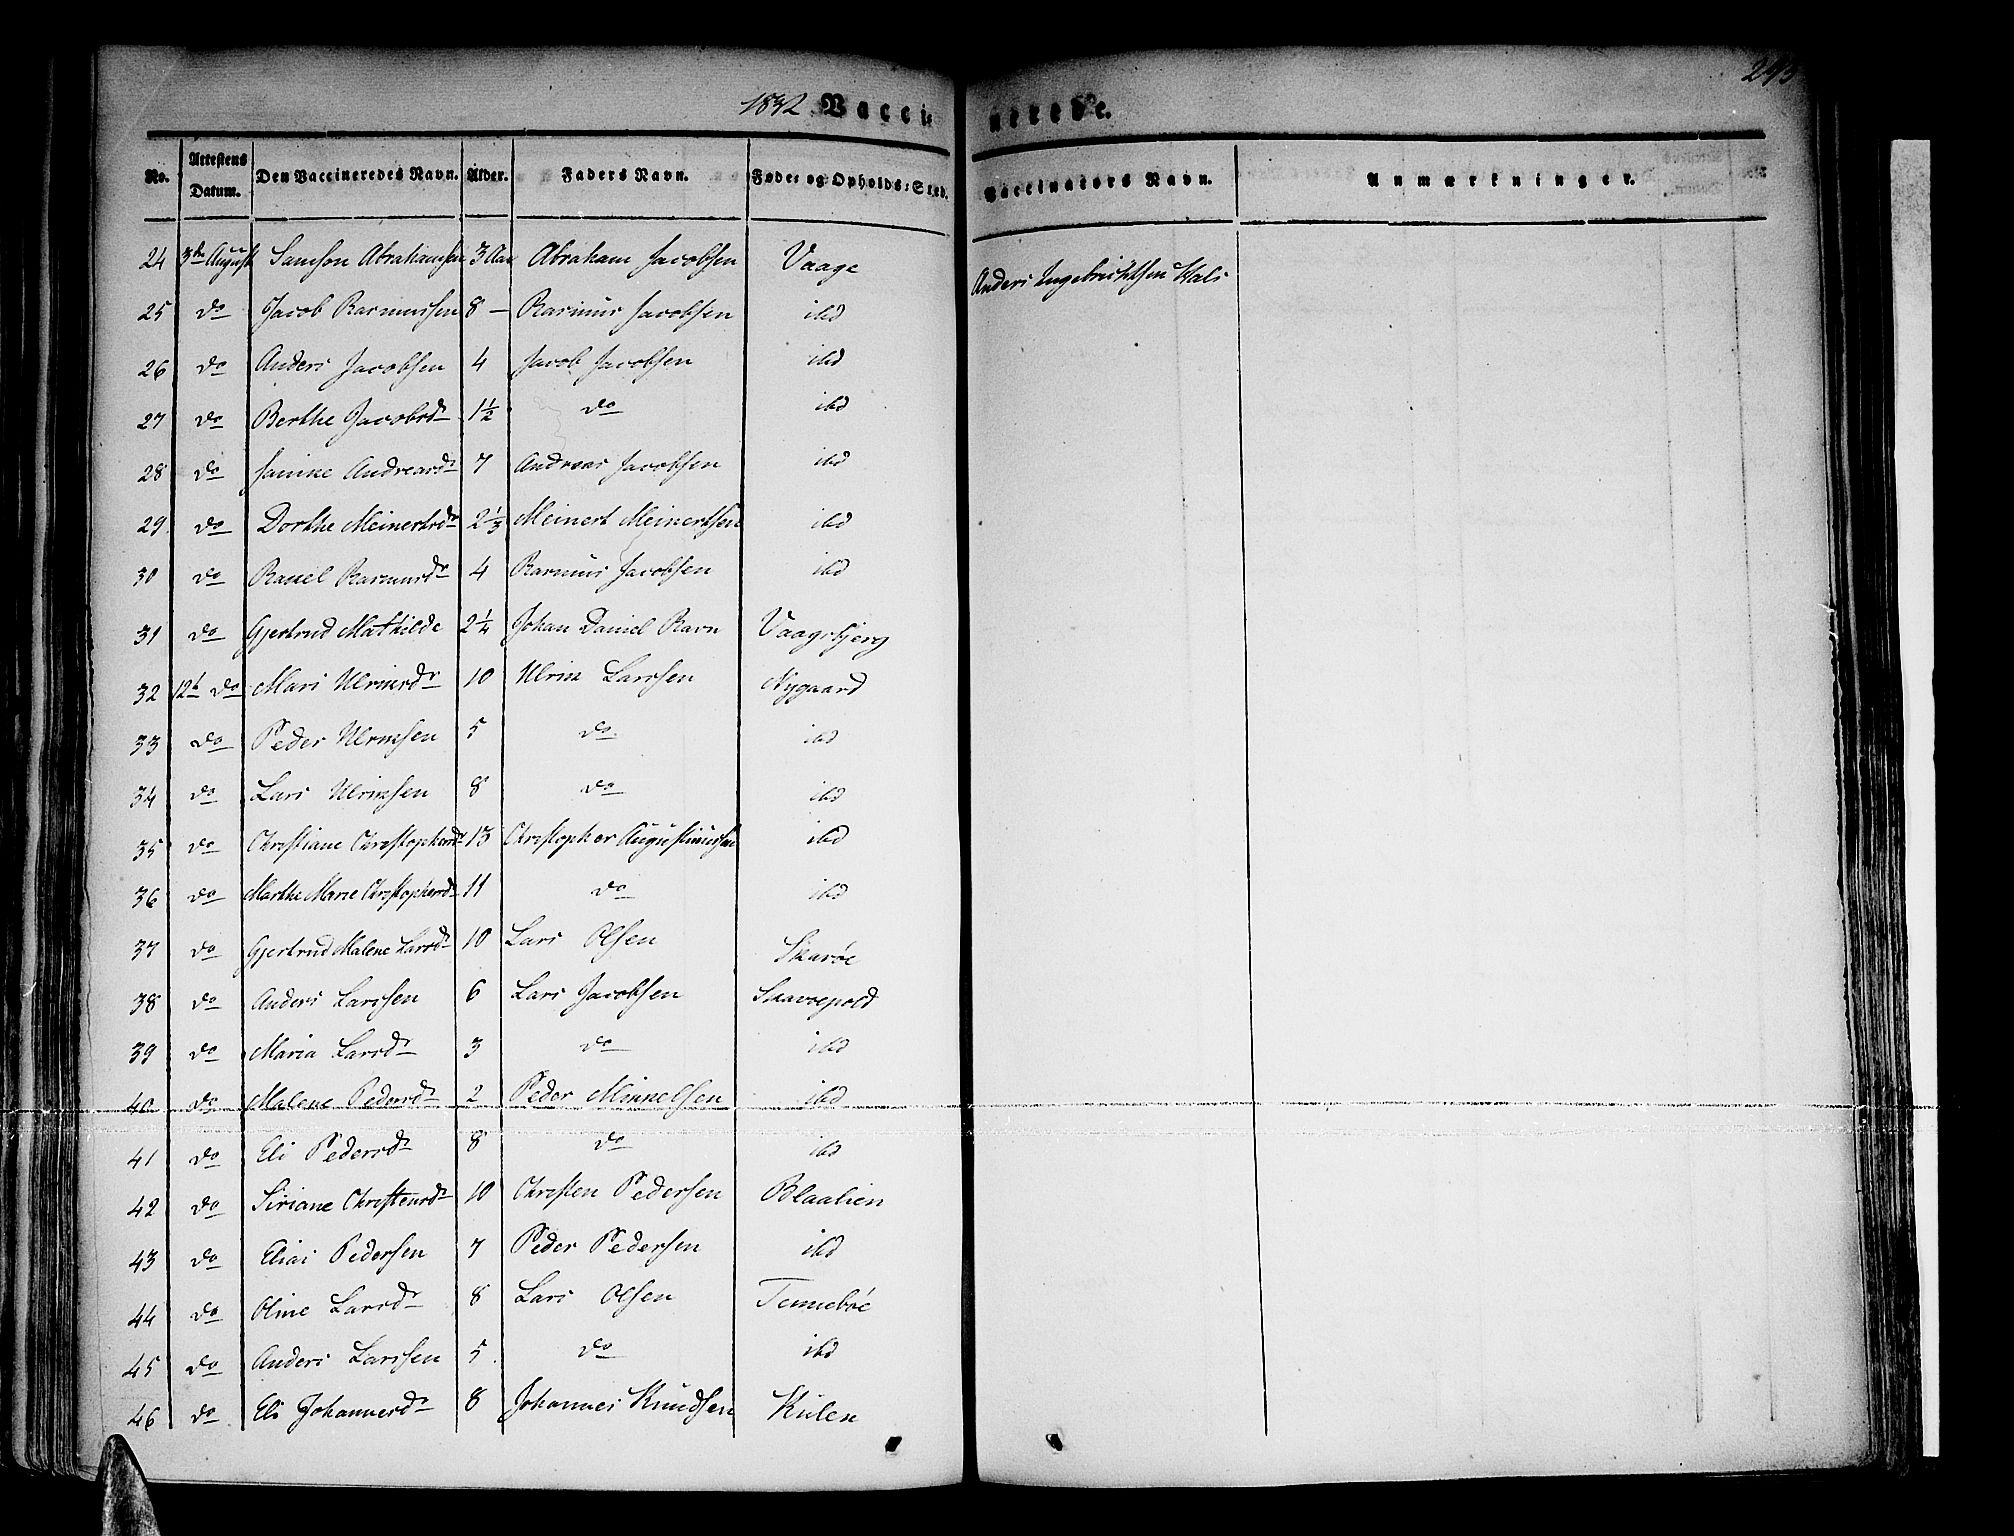 1832 Vaccinerede.
No. Attestens Datum. Den Vaccineredes Navn. Alder. Faders Navn. Føde: og Opholds: Sted. Vaccinators Navn. Anmærkninger.
24 3de August Samson Abrahamsen 3 Aar Abraham Jacobsen Vaage Anders Ingebrichtsen Hals
25 do Jacob Rasmussen 8 — Rasmus Jacobsen ibd
26 do Anders Jacobsen 4 Jacob Jacobsen ibd
27 do Berthe Jacobsdr 1½ do ibd
28 do Andreasdr 7 Andreas Jacobsen ibd
29 do Dorthe Meinertsdr 2⅓ Meinert Meinertsen ibd
30 do Rasmusdr 4 Rasmus Jacobsen ibd
31 do Gjertrud Mathilde 2¼ Johan Daniel Ravn Vaagsbjerg
32 12t do Mari Ulriksdr 10 Ulrik Larssen Nygaard
33 do Peder Ulriksen 5 do ibd
34 do Lars Ulriksen 8 do ibd
35 do Christiane Christophersdr 13 Christopher Augustinussen ibd
36 do Marthe Marie Christophersdr 11 do ibd
37 do Gjertrud Malene Larsdr 10 Lars Olsen Skarøe
38 do Anders Larssen 6 Lars Jacobsen
39 do Maria Larsdr 3 do ibd
40 do Malene Pedersdr 2 Peder Mikkelsen ibd
41 do Eli Pedersdr 8 do ibd
42 do Siriane Christensdr 10 Christen Pedersen Blaalien
43 do Elias Pedersen 7 Peder Pedersen ibd
44 do Oline Larsdr 8 Lars Olsen Tennebøe
45 do Anders Larssen 5 do ibd
46 do Eli Johannesdr 8 Johannes Knudsen Kulen